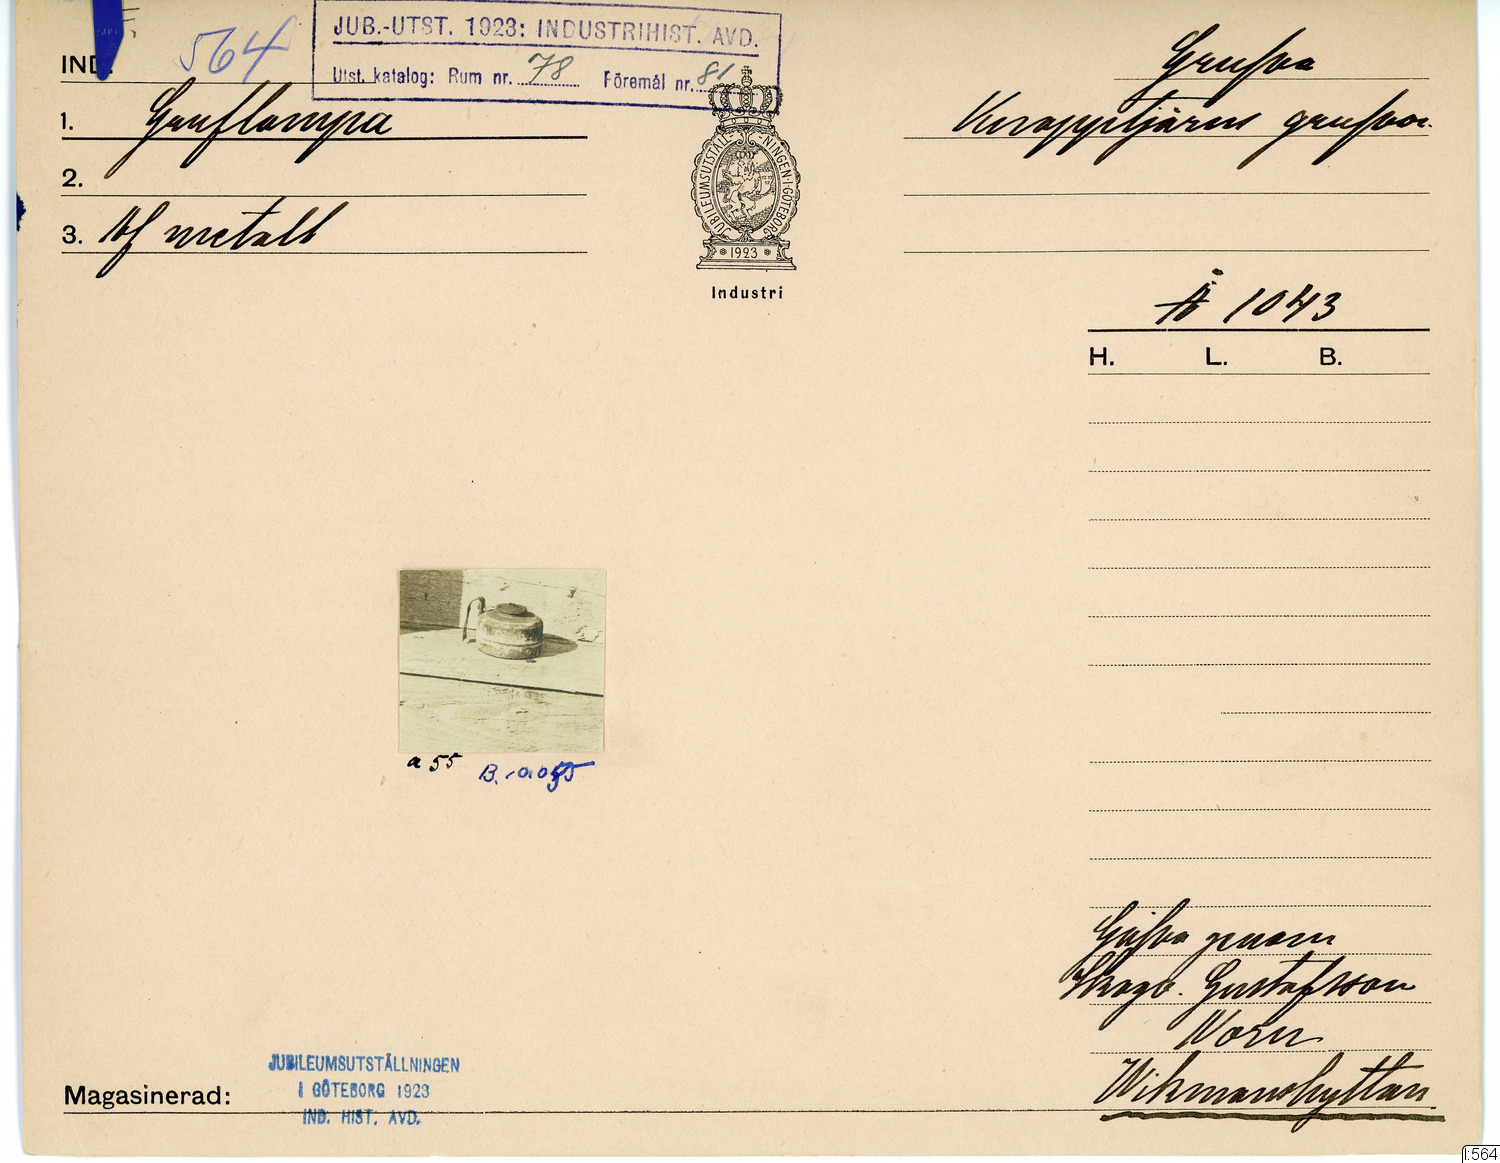 IND.
564
JUB.-UTST. 1923: INDUSTRIHIST. AVD.
Utst. katalog: Rum nr. 78 Föremål nr. 81
1. Gruflampa
2.
3. Af metall
JUBILEUMSUTSTÄLLNINGEN·I·GÖTEBORG
1923
Industri
Grufva
Knappstjärns grufvor.
Å 1043
H. L. B.
a 55
B.
Gåfva genom
Gustafsson
Norn
Wikmanshyttan
Magasinerad:
JUBILEUMSUTSTÄLLNINGEN
I GÖTEBORG 1923
IND. HIST. AVD.
I:564